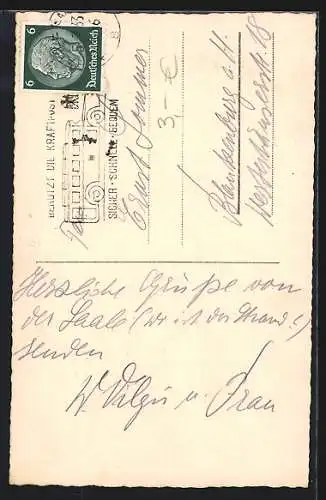 6
Deutsches Reich
6
BENUTZT DIE KRAFTPOST
SICHER · SCHNELL · BEQUEM
Ernst Sommer
3,- €
Blankenburg a. H.
Herzliche Grüße von
der Saale (wo ist der Strand?)
senden
W. Vilgis u. Frau